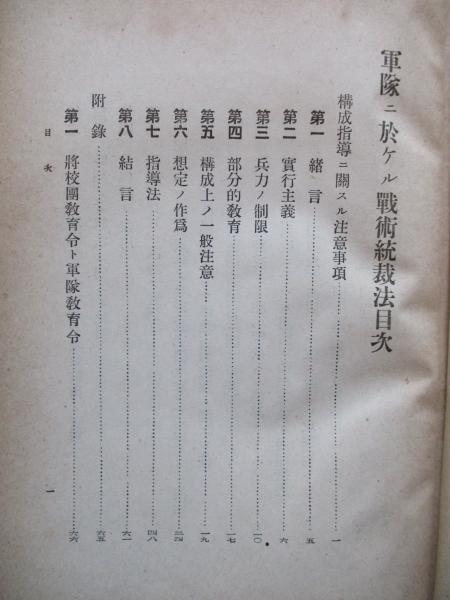 軍隊ニ於ケル戰術統裁法目次
構成指導ニ關スル注意事項……一
第一 緒言……五
第二 實行主義……六
第三 兵力ノ制限……一〇
第四 部分的敎育……一七
第五 構成上ノ一般注意……一九
第六 想定ノ作爲……三四
第七 指導法……四八
第八 結言……六一
附錄……六五
第一 將校團敎育令ト軍隊敎育令……六六
目次
一